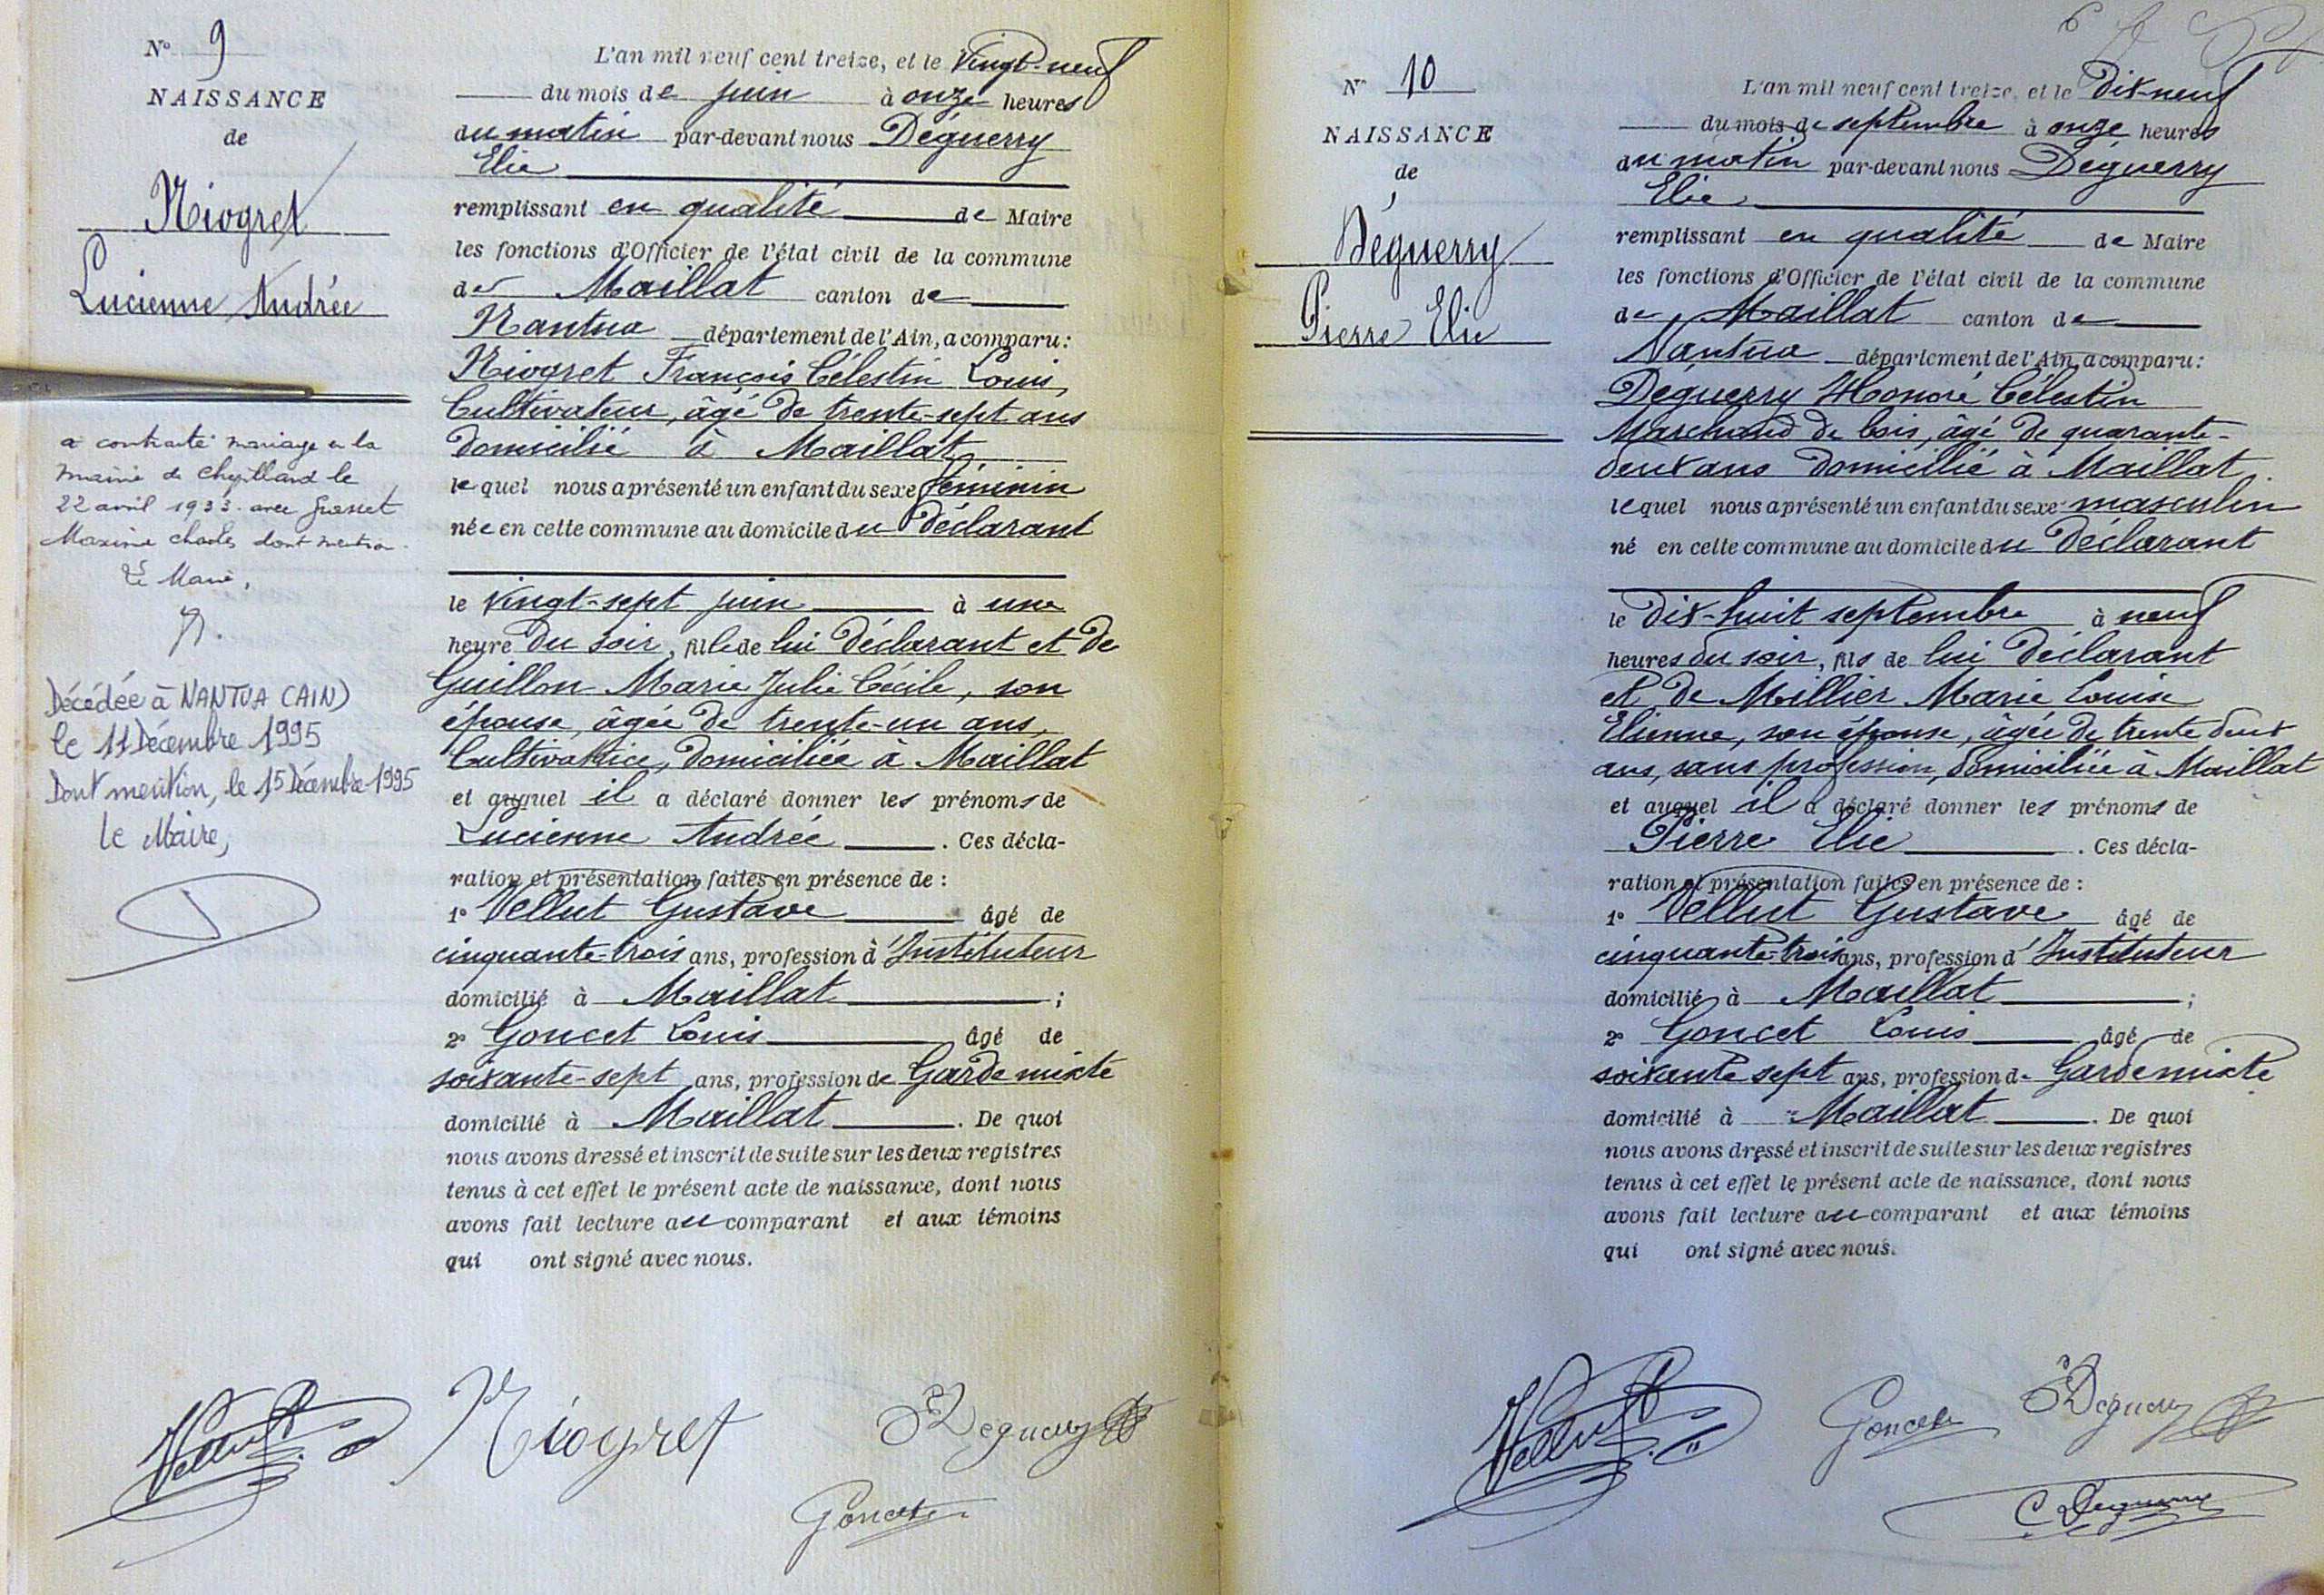 N° 9
NAISSANCE
de
Niogret
Lucienne Andrée
a contracté mariage à la
mairie de le
22 avril 1933 avec
Maxime Charles dont mention
Le Maire,
Décédée à NANTUA (AIN)
le 11 Décembre 1995
Dont mention, le 15 Décembre 1995
le Maire,
L'an mil neuf cent treize, et le vingt-neuf
du mois de juin à onze heures
du matin par-devant nous Déguerry
Elie
remplissant en qualité de Maire
les fonctions d'Officier de l'état civil de la commune
de Maillat canton de
Nantua département de l'Ain, a comparu:
Niogret François Célestin Louis,
Cultivateur, âgé de trente-sept ans
domicilié à Maillat
lequel nous a présenté un enfant du sexe féminin
née en cette commune au domicile du déclarant
le vingt-sept juin à une
heure du soir, fille de lui déclarant et de
Guillon Marie Julie Cécile, son
épouse, âgée de trente-un ans,
Cultivatrice, domiciliée à Maillat
et auquel il a déclaré donner les prénoms de
Lucienne Andrée . Ces décla-
ration et présentation faites en présence de :
1° Vellut Gustave âgé de
cinquante-trois ans, profession d'Instituteur
domicilié à Maillat ;
2° Goncet Louis âgé de
soixante-sept ans, profession de Garde mixte
domicilié à Maillat . De quoi
nous avons dressé et inscrit de suite sur les deux registres
tenus à cet effet le présent acte de naissance, dont nous
avons fait lecture au comparant et aux témoins
qui ont signé avec nous.
Vellut Niogret E Deguerry
Goncet
N° 10
NAISSANCE
de
Déguerry
Pierre Elie
L'an mil neuf cent treize, et le dix-neuf
du mois de septembre à onze heures
du matin par-devant nous Déguerry
Elie
remplissant en qualité de Maire
les fonctions d'Officier de l'état civil de la commune
de Maillat canton de
Nantua département de l'Ain, a comparu:
Déguerry Honoré Célestin
Marchand de bois, âgé de quarante-
deux ans domicilié à Maillat.
lequel nous a présenté un enfant du sexe masculin
né en cette commune au domicile du déclarant
le dix-huit septembre à neuf
heures du soir, fils de lui déclarant
et de Millier Marie Louise
Etienne, son épouse, âgée de trente deux
ans, sans profession, domiciliée à Maillat
et auquel il a déclaré donner les prénoms de
Pierre Elie . Ces décla-
ration et présentation faites en présence de :
1° Vellut Gustave âgé de
cinquante-trois ans, profession d'Instituteur
domicilié à Maillat ;
2° Goncet Louis âgé de
soixante sept ans, profession de Garde mixte
domicilié à Maillat . De quoi
nous avons dressé et inscrit de suite sur les deux registres
tenus à cet effet le présent acte de naissance, dont nous
avons fait lecture au comparant et aux témoins
qui ont signé avec nous.
Vellut Goncet E Deguerry
C. Deguerry